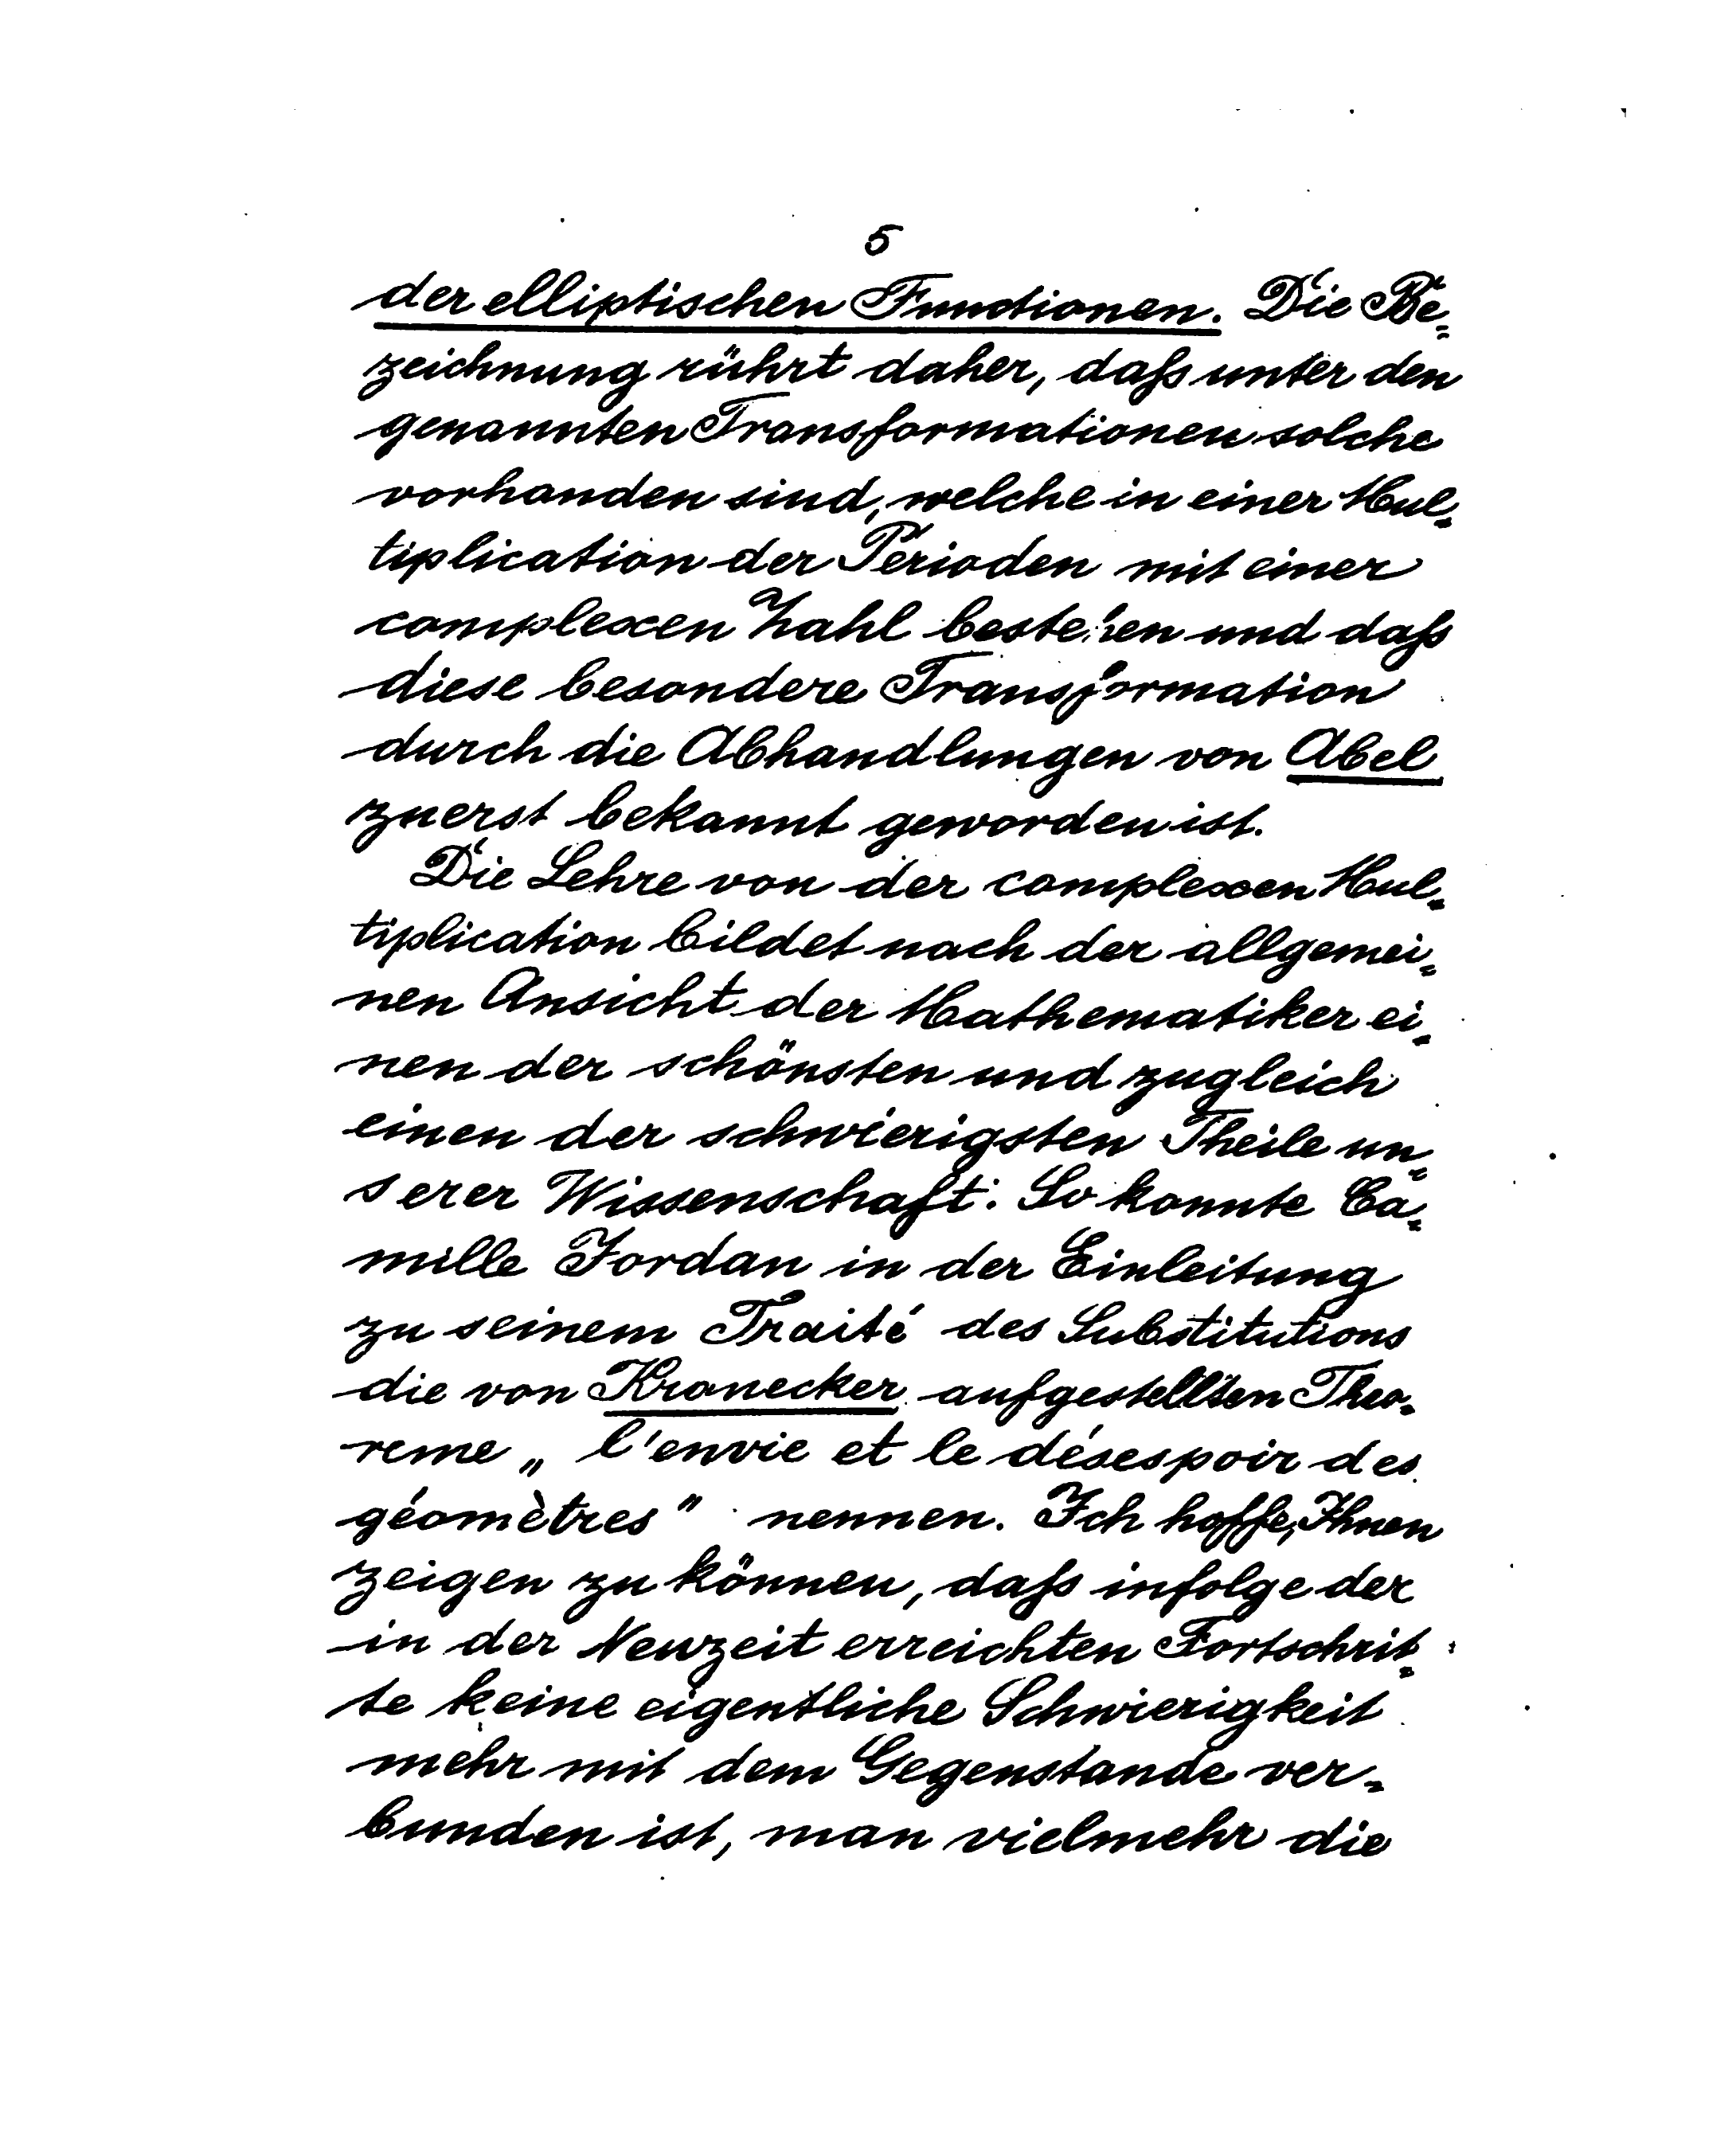 5
der elliptischen Functionen. Die Be-
zeichnung rührt daher, daß unter den
genannten Transformationen solche
vorhanden sind, welche in einer Mul-
tiplication der Perioden mit einer
complexen Zahl bestehen und daß
diese besondere Transformation
durch die Abhandlungen von Abel
zuerst bekannt geworden ist.
Die Lehre von der complexen Mul-
tiplication bildet nach der allgemei-
nen Ansicht der Mathematiker ei-
nen der schönsten und zugleich
einen der schwierigsten Theile un-
serer Wissenschaft: So konnte Ca-
mille Jordan in der Einleitung
zu seinem Traité des Substitutions
die von Kronecker aufgestellten Theo-
reme „l'envie et le désespoir des
géomètres" nennen. Ich hoffe, Ihnen
zeigen zu können, daß infolge der
in der Neuzeit erreichten Fortschrit-
te keine eigentliche Schwierigkeit
mehr mit dem Gegenstande ver-
bunden ist, man vielmehr die